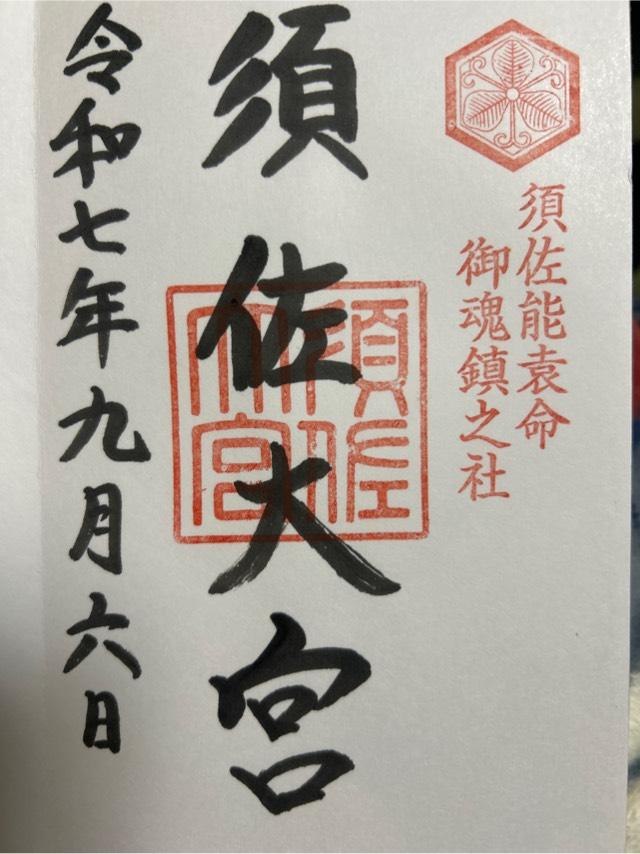 須佐能袁命
御魂鎮之社
須佐大宮
須佐大宮
令和七年九月六日